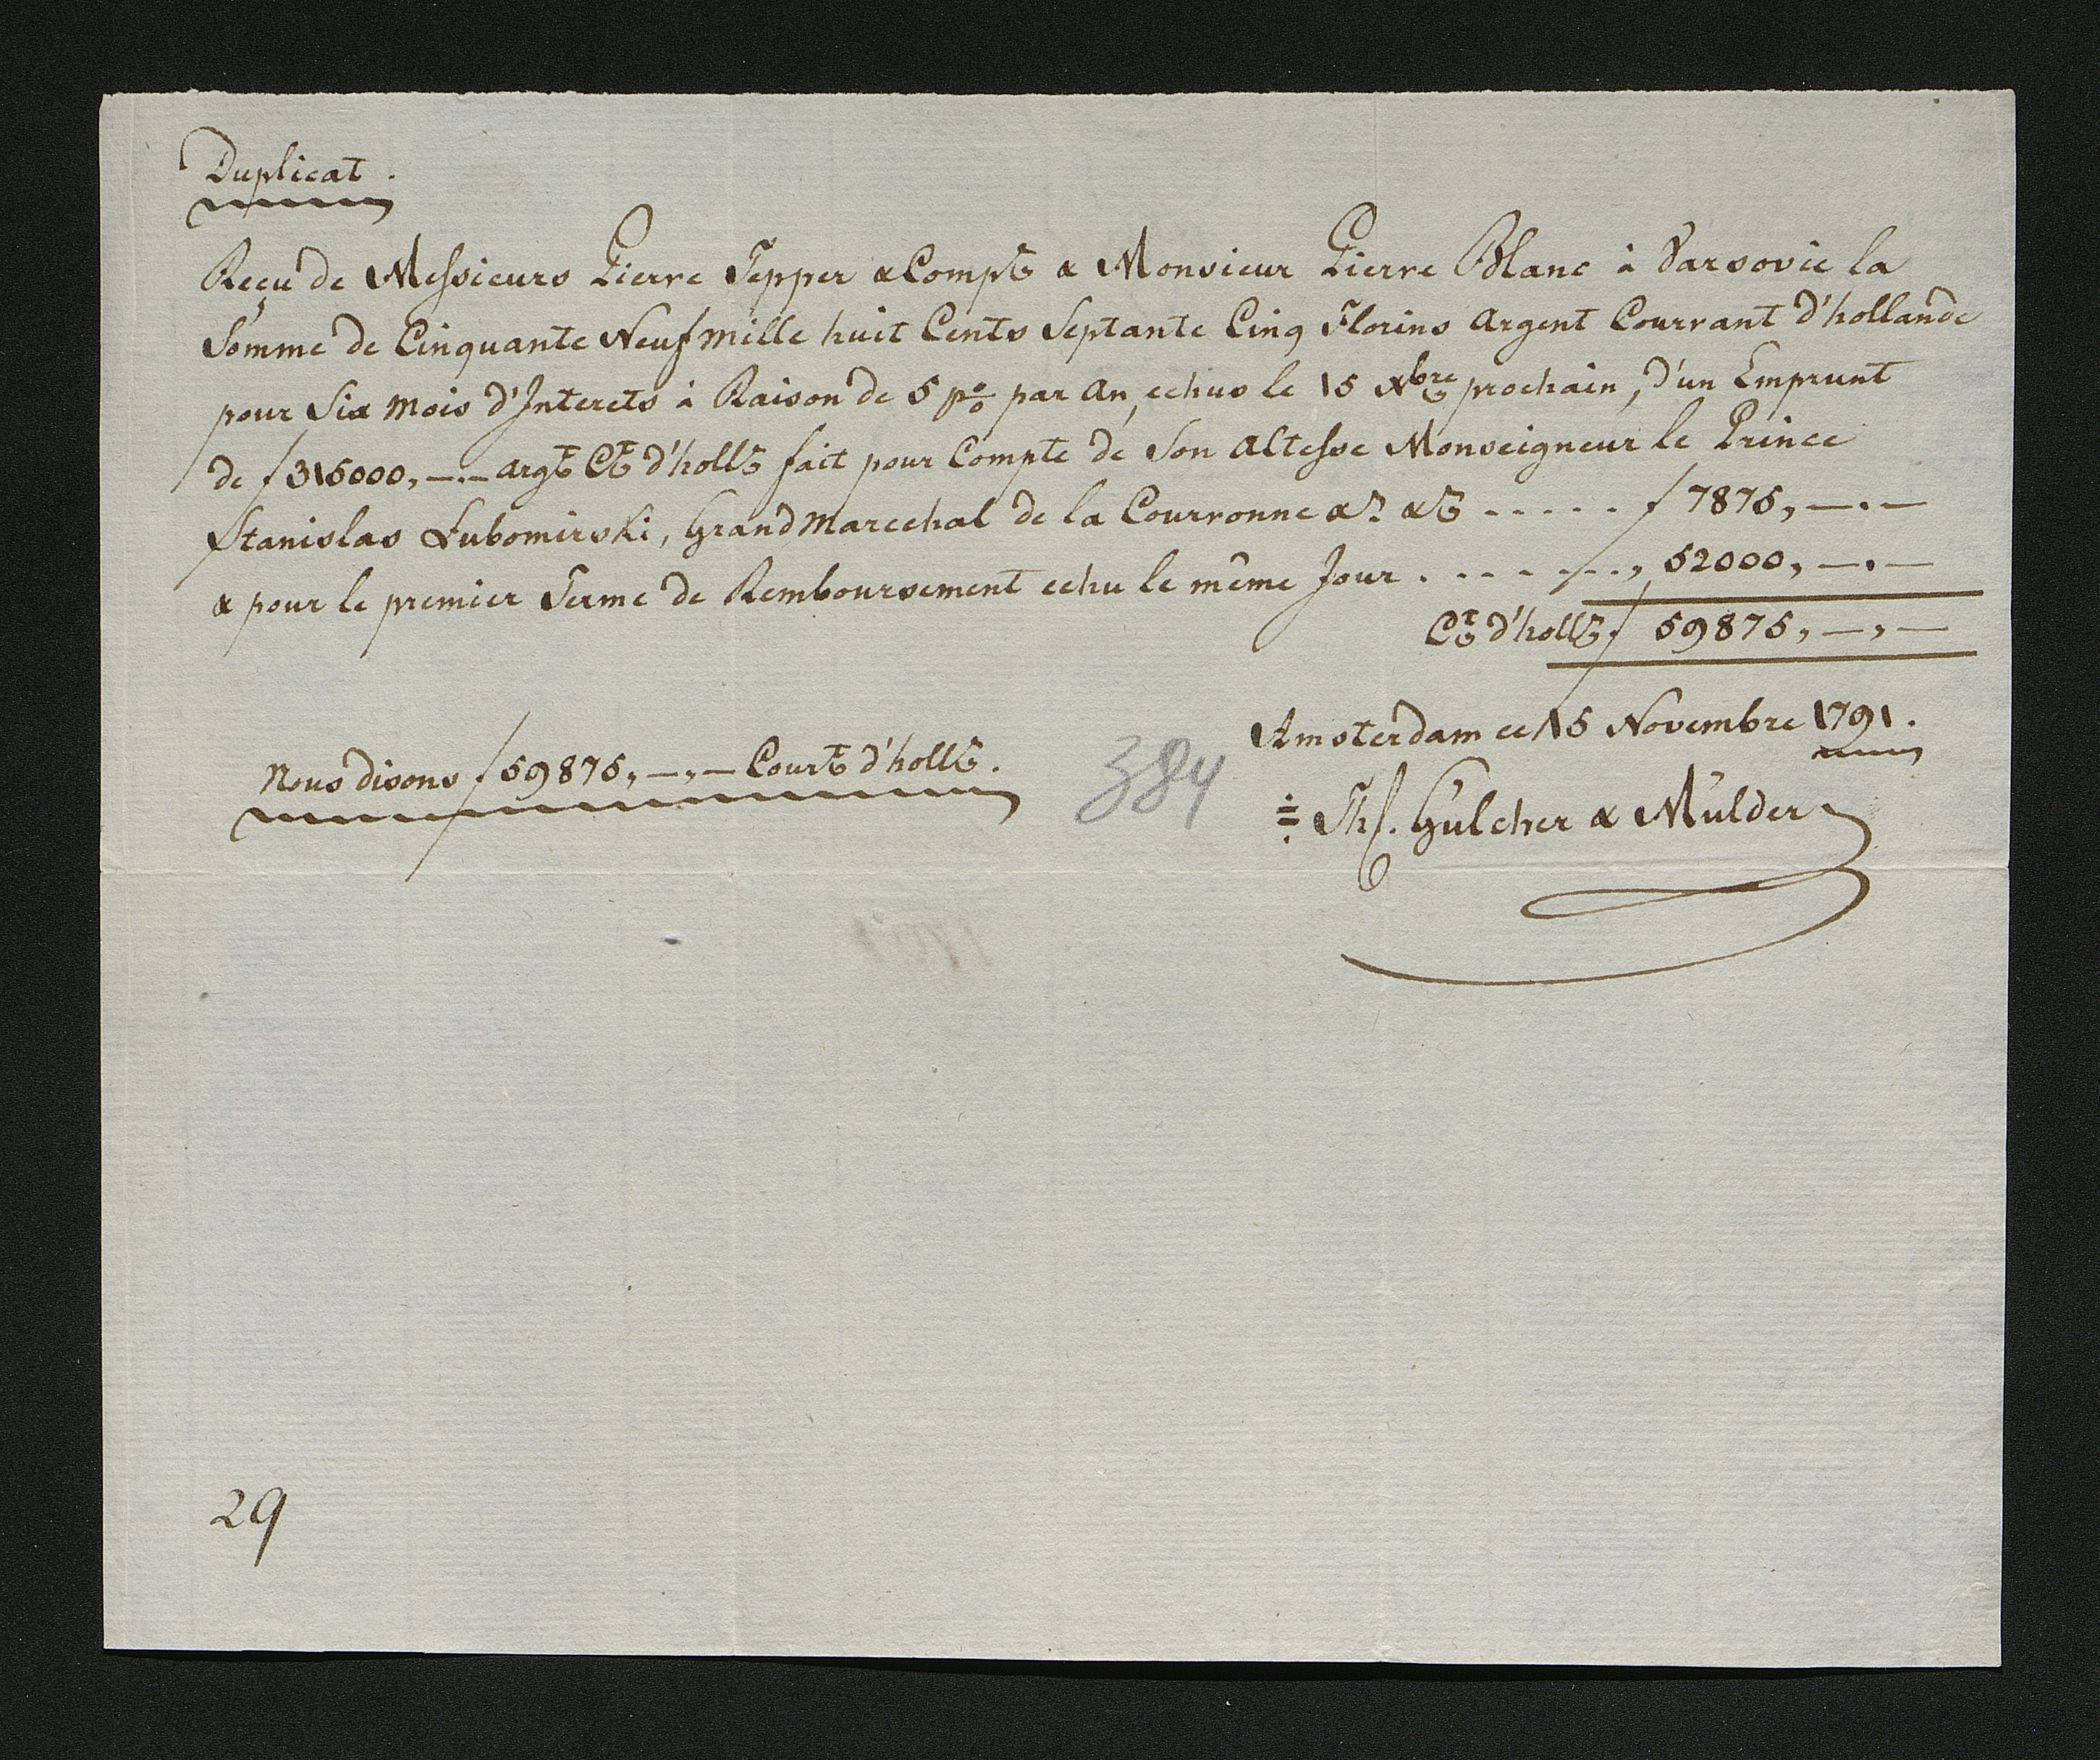 Duplicat.
Reçu de Messieurs Pierre Tepper & Compe & Monsieur Pierre Blanc à Varsovie la
Somme de Cinquante Neuf mille huit Cents Septante Cinq Florins Argent Courrant d'hollande
pour Six Mois d'Interets à Raison de 5 p% par An, echus le 15 Xbre prochain, d'un Emprunt
de f 315000,-.- argt Ct d'holle fait pour Compte de Son Altesse Monseigneur le Prince
Stanislas Lubomirski, Grand Marechal de la Courronne &c. &c ..... f 7875,-.-
& pour le premier Terme de Remboursement echu le même Jour ......., 52000,-.-
Ct d'holle f 59875,-,-
Amsterdam ce 15 Novembre 1791.
Nous disons f 59875,-,- Court d'holle.
384
Th. Gülcher & Mülder
29